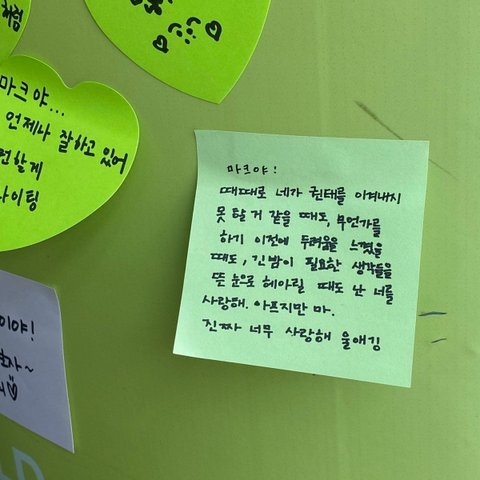 처럼
마크야...
언제나 잘하고 있어
할게
이팅
마크야!
때때로 네가 권태를 이겨내지
못 할 거 같을 때도, 무언가를
하기 이전에 두려움을 느꼈을
때도, 긴 밤이 필요한 생각들을
뜬 눈으로 헤아릴 때도 난 너를
사랑해. 아프지만 마.
진짜 너무 사랑해 울애깅
이야!